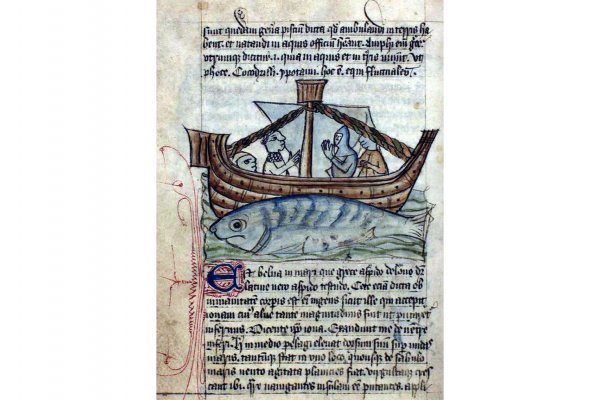 sunt quedam gen̄a pisciū dicta qd̄ ambulandi in terris ha
bent. et natandi in aquis officiū Amphi em̄ grece
utrumque dicitur .i. quia in aquis et in t̄ris uiuūt. vt
phoce. Cocodrilli. ypotami. hoc ē. equi fluctuales.
Est belua in mari que grece aspido delone dr̄
latine vero aspido testudo. Cete etiā dicta ob
immanitatem corpis est em̄ ingens sicut ille qui excepit
ionam cuiꝰ alueꝰ tante magnitudinis fuit ut putaret̄
infernus. Dicente ip̄o iona. Exaudiuit me de uentre
inferi. in medio pelagi eleuat dorsum suū sup̄ undas
maris. tantūque stat in uno loco, quousque de sabulo
maris uento agitata planicies fiat. virgultaque cres
cant ibi. Qr̄ nauigantes insulam eē putantes. appli